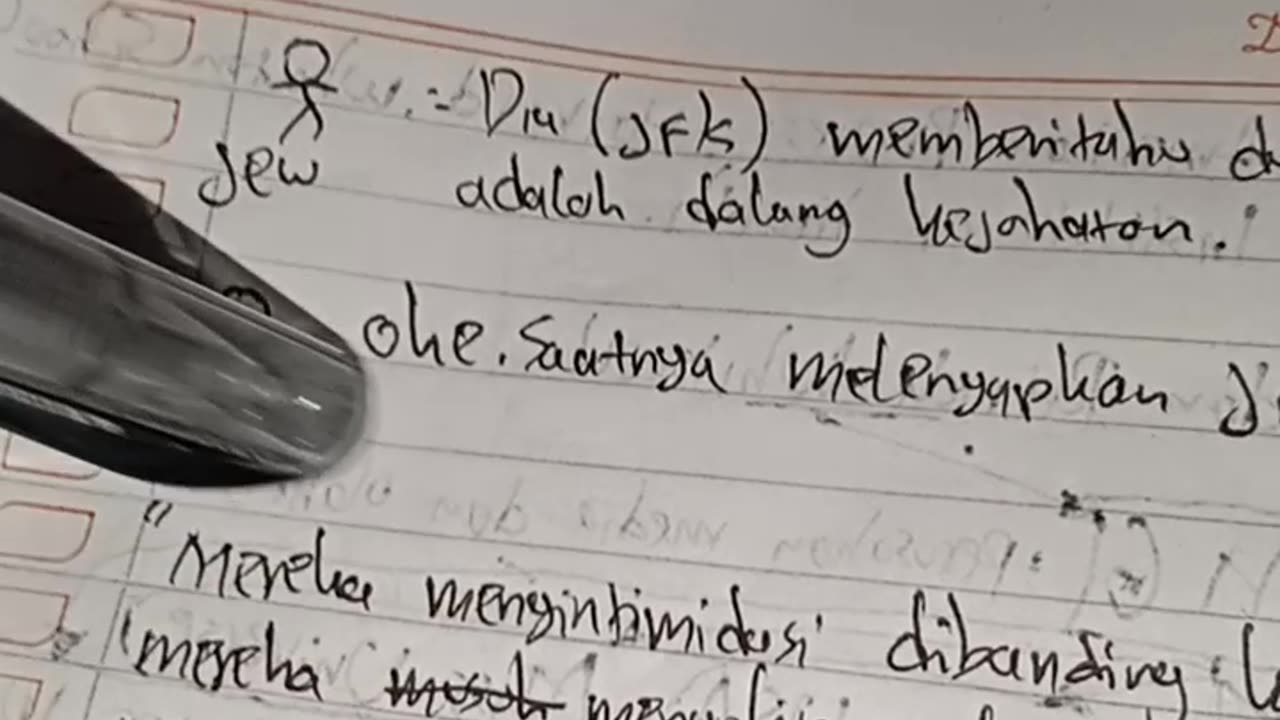 :- Dia (JFK) memberitahu
Jew adalah dalang kejahatan.
oke. Saatnya melenyapkan
"Mereka mengintimidasi dibanding
mereka